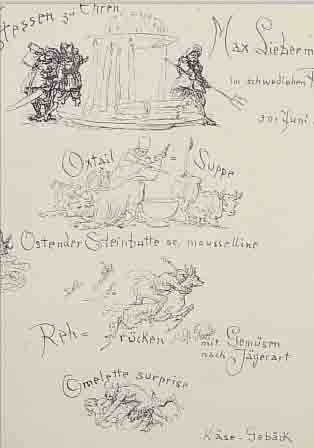 Essen zu Ehren
Max Lieberm
im schwedischen P
Juni
Oxtail = Suppe
Ostender Steinbutte sc. mousselline
Reh = rücken mit Gemüsen
nach Jägerart
Omelette surprise
Käse - Gebäck